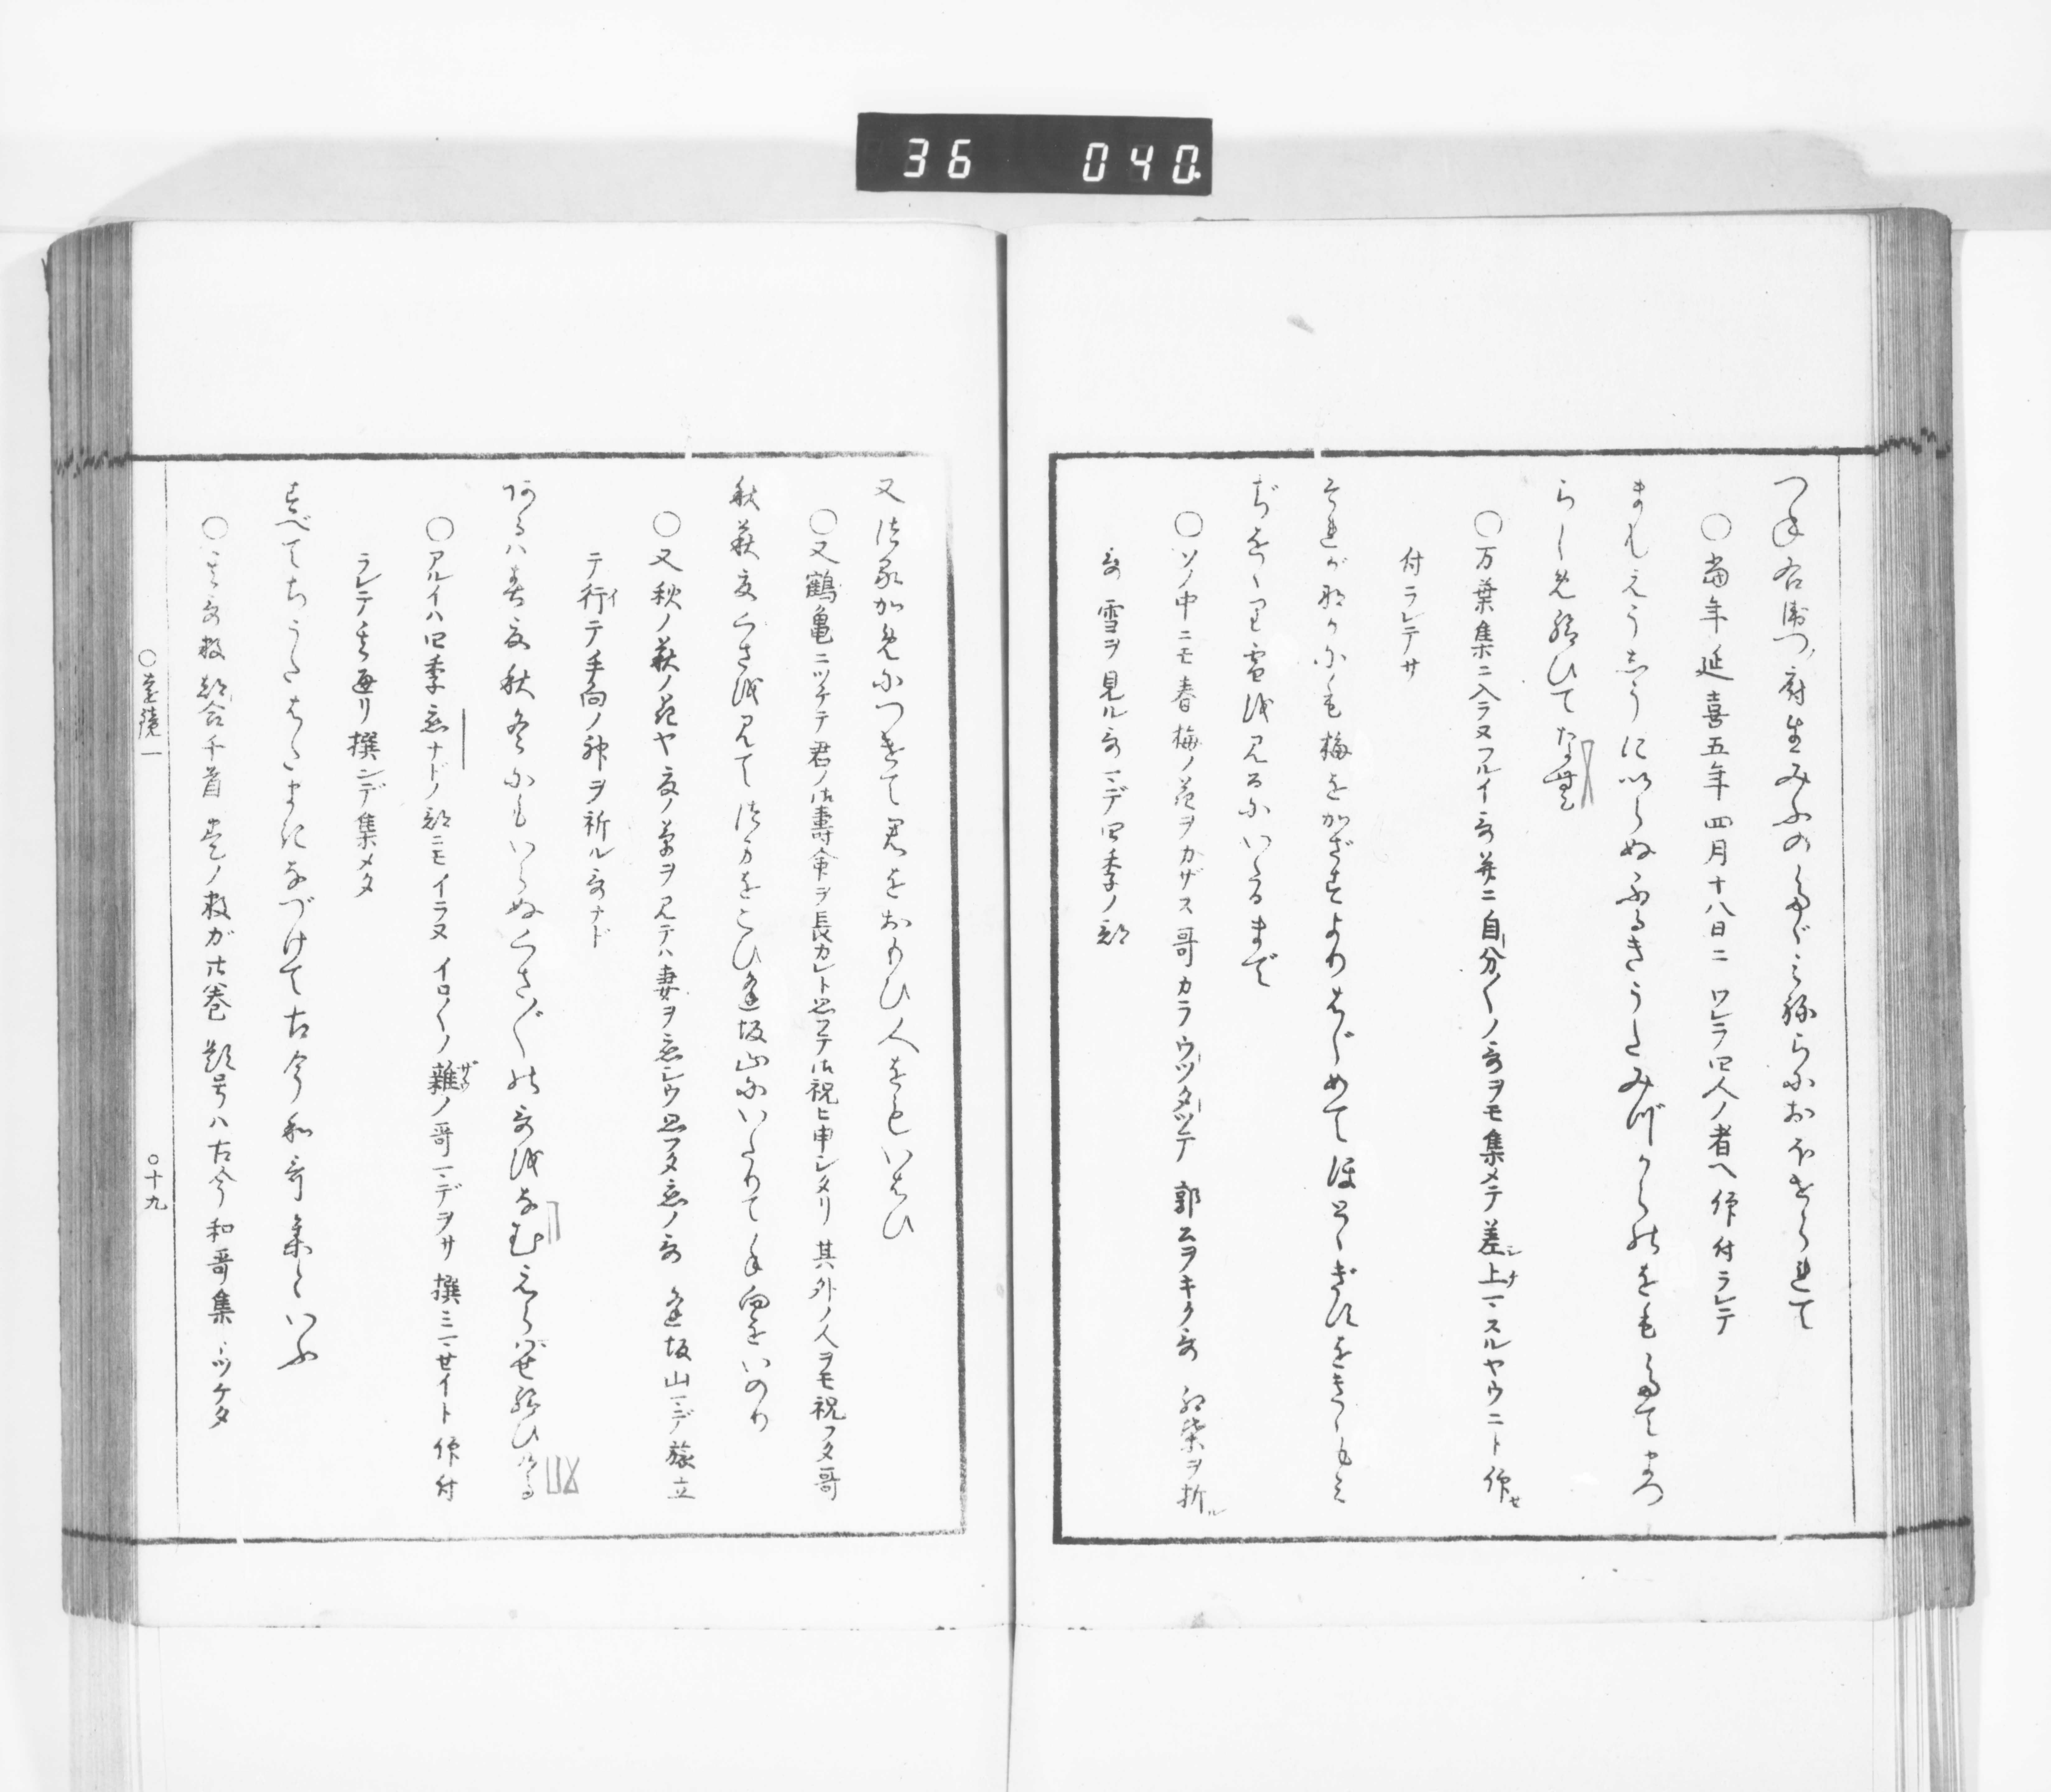 36 040
つね右衛門府生みふのたゞみねらにおほせられて
○當年延喜五年四月十八日ニ ワレラ四人ノ者ヘ仰付ラレテ
まんえうしうにいらぬふるきうたみづからのをもたてまつ
らしめ給ひてなむ
○万葉集ニ入ラヌフルイ哥并ニ自分〳〵ノ哥ヲモ集メテ差上マスルヤウニト仰セ
付ラレテサ
それがなかにも梅をかざすよりはじめてほとゝぎすをきゝもみ
ぢををり雪を見るにいたるまで
○ソノ中ニモ春梅ノ花ヲカザス哥カラウツタツテ 郭公ヲキク哥 紅葉ヲ折ル
哥 雪ヲ見ル哥マデ四季ノ部
又つるかめにつけて君をおもひ人をもいはひ
○又鶴亀ニツケテ君ノ御壽命ヲ長カレト思フテ御祝ヒ申シタリ 其外ノ人ヲモ祝フタ哥
秋萩夏くさを見てつまをこひ逢坂山にいたりて手向をいのり
○又秋ノ萩ノ花ヤ夏ノ草ヲ見テハ妻ヲ恋シウ思フタ恋ノ哥 逢坂山マデ旅立
テ行テ手向ノ神ヲ祈ル哥ナド
あるハ春夏秋冬にもいらぬくさ〴〵の哥をなむえらばせ給ひける
○アルイハ四季恋ナドノ部ニモイラヌ イロ〳〵ノ雜ノ哥マデヲサ 撰ミマセイト仰付
ラレテ 撰ンデ集メタ
すべてちうたはたまきなづけて古今和哥集といふ
○哥数都合千首 巻ノ数が廿巻 題号ハ古今和哥集トツケタ
○遠鏡一
○十九